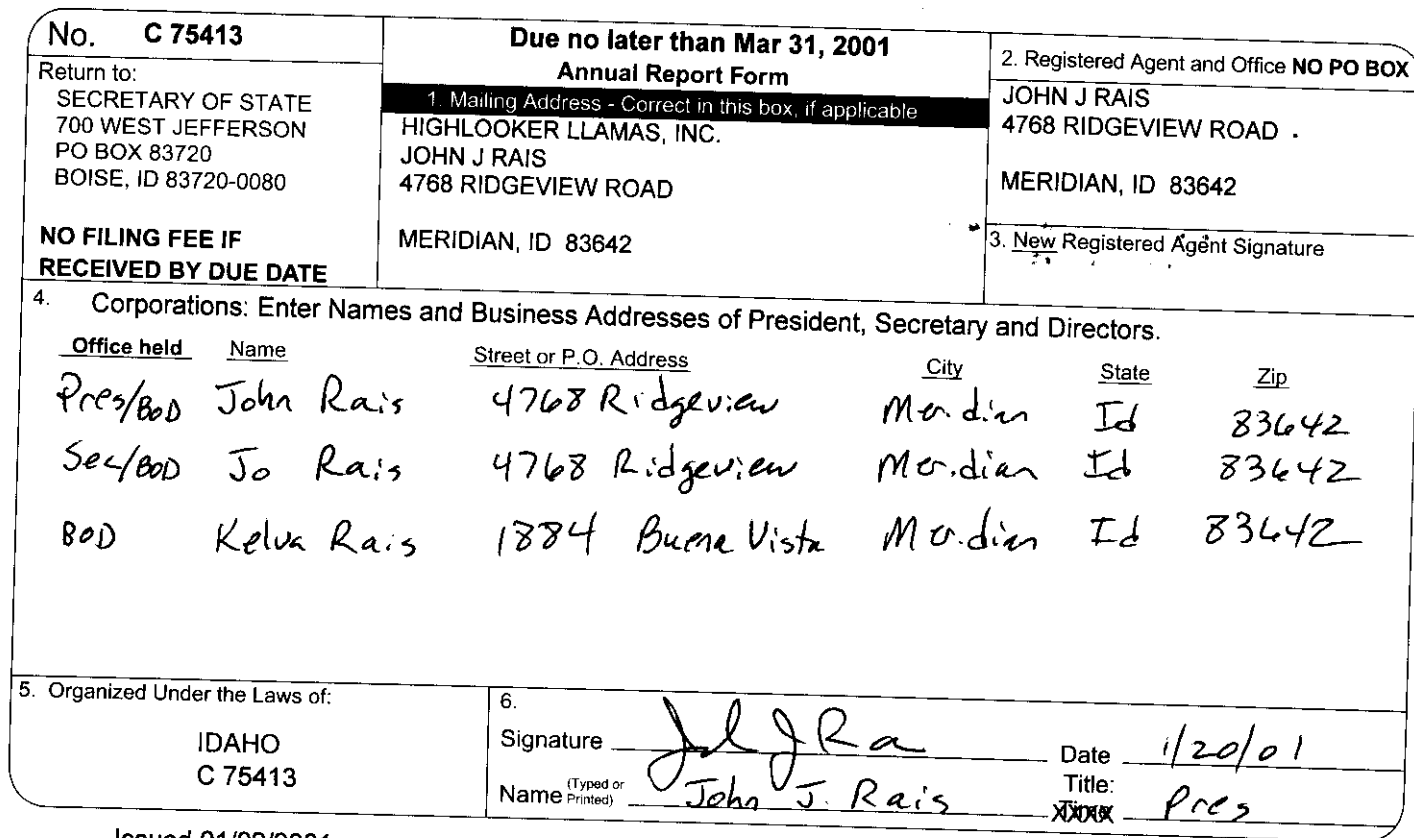 No. C 75413
Return to:
SECRETARY OF STATE
700 WEST JEFFERSON
PO BOX 83720
BOISE, ID 83720-0080
NO FILING FEE IF
RECEIVED BY DUE DATE
Due no later than Mar 31, 2001
Annual Report Form
1. Mailing Address - Correct in this box, if applicable
HIGHLOOKER LLAMAS, INC.
JOHN J RAIS
4768 RIDGEVIEW ROAD
MERIDIAN, ID 83642
2. Registered Agent and Office NO PO BOX
JOHN J RAIS
4768 RIDGEVIEW ROAD
MERIDIAN, ID 83642
3. New Registered Agent Signature
4. Corporations: Enter Names and Business Addresses of President, Secretary and Directors.
Office held Name Street or P.O. Address City State Zip
Pres/BOD John Rais 4768 Ridgeview Meridian Id 83642
Sec/BOD Jo Rais 4768 Ridgeview Meridian Id 83642
BOD Kelva Rais 1884 Buena Vista Meridian Id 83642
5. Organized Under the Laws of:
IDAHO
C 75413
6.
Signature Date 1/20/01
Name (Typed or Printed) John J. Rais Title: Pres